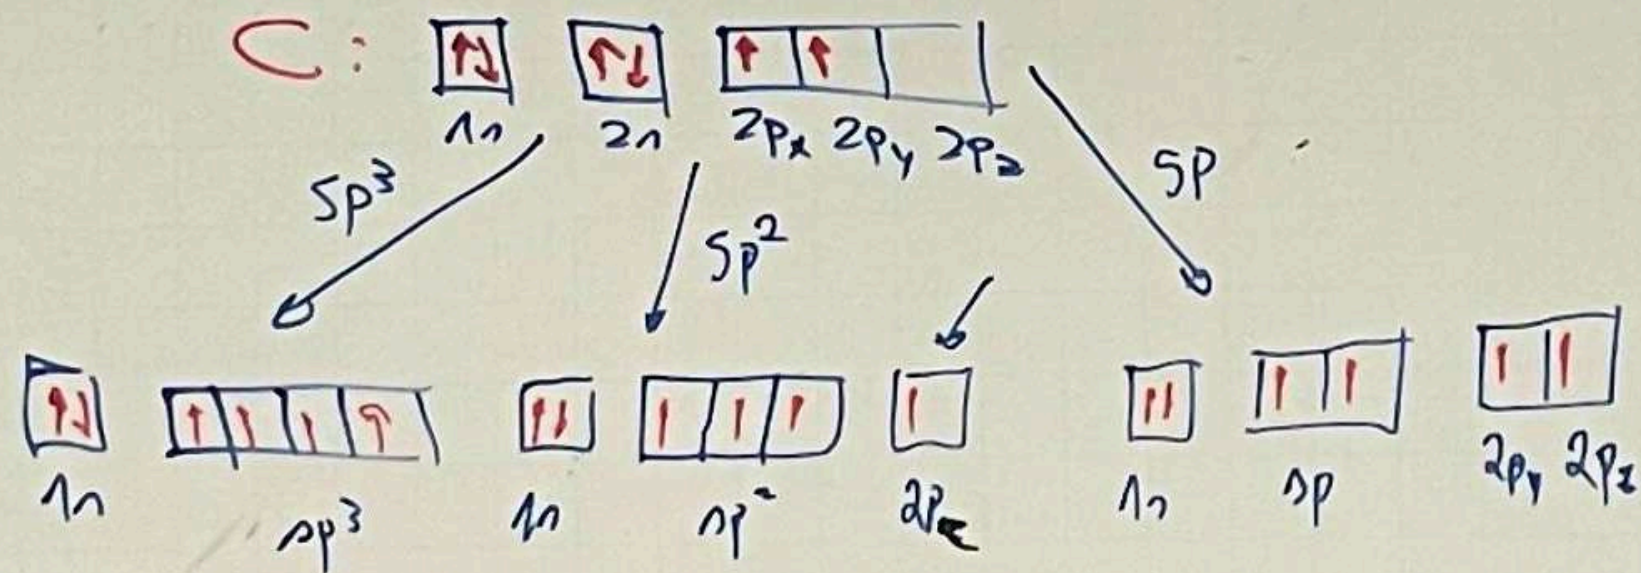 C: ↑↓ ↑↓ ↑ ↑
1s 2s 2px 2py 2pz
sp³ sp² sp
↑↓ ↑ ↑ ↑ ↑ ↑↓ ↑ ↑ ↑ ↑ ↑↓ ↑ ↑ ↑ ↑
1s sp³ 1s sp² 2pz 1s sp 2py 2pz